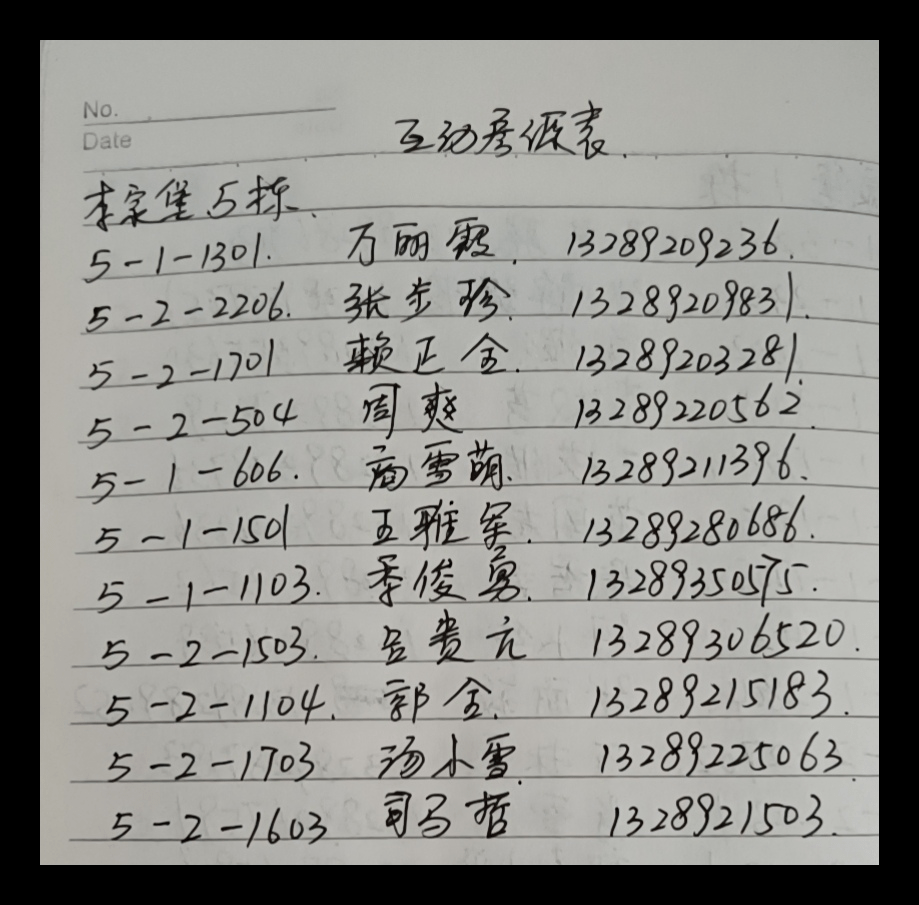 No.
Date
互动房源表.
李家堡5栋.
5-1-1301. 万丽霞. 13289209236.
5-2-2206. 张步珍. 13289209831.
5-2-1701 赖正全. 13289203281.
5-2-504 周爽 13289220562.
5-1-606. 商雪萌. 13289211396.
5-1-1501 王雅军. 13289280686.
5-1-1103. 季俊勇. 13289350575.
5-2-1503. 吕贵亢 13289306520.
5-2-1104. 郭全. 13289215183.
5-2-1703 汤小雪. 13289225063.
5-2-1603 司马哲 1328921503.